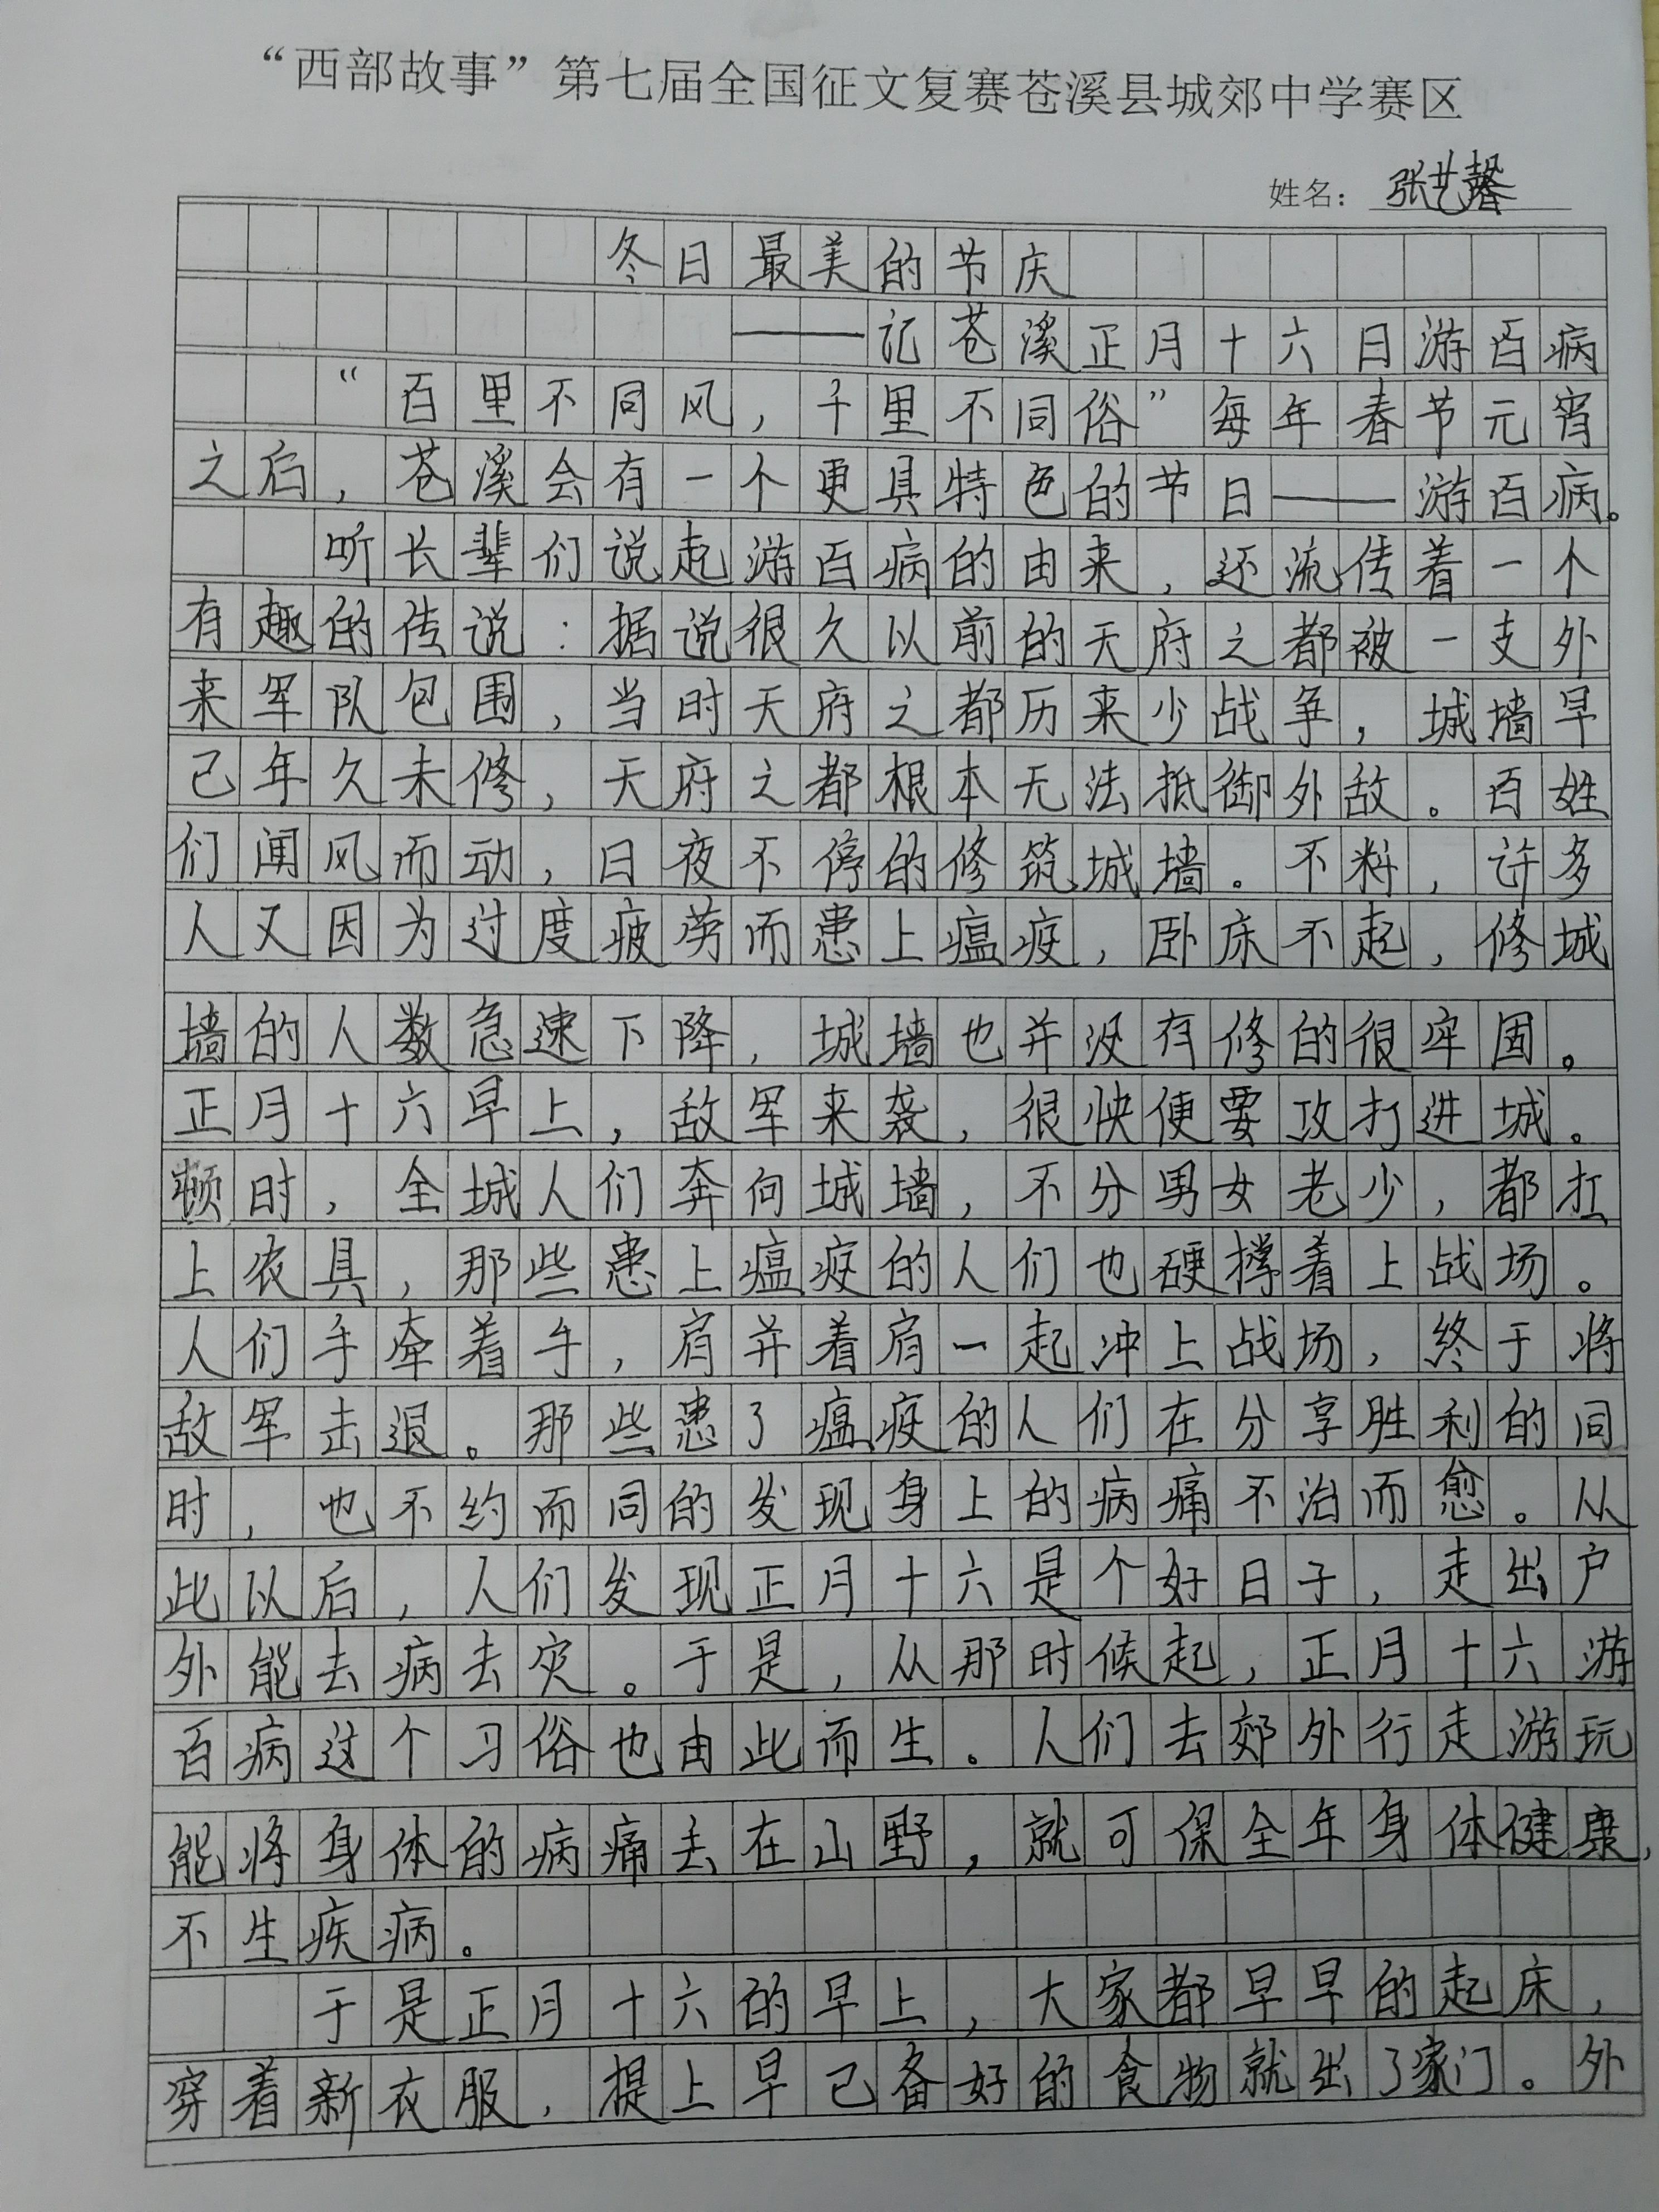 “西部故事”第七届全国征文复赛苍溪县城郊中学赛区
姓名：张艺馨
冬日最美的节庆
——记苍溪正月十六日游百病
“百里不同风，千里不同俗”每年春节元宵
之后，苍溪会有一个更具特色的节日——游百病。
听长辈们说起游百病的由来，还流传着一个
有趣的传说：据说很久以前的天府之都被一支外
来军队包围，当时天府之都历来少战争，城墙早
已年久未修，天府之都根本无法抵御外敌。百姓
们闻风而动，日夜不停的修筑城墙。不料，许多
人又因为过度疲劳而患上瘟疫，卧床不起，修城
墙的人数急速下降，城墙也并没有修的很牢固。
正月十六早上，敌军来袭，很快便要攻打进城。
顿时，全城人们奔向城墙，不分男女老少，都扛
上农具，那些患上瘟疫的人们也硬撑着上战场。
人们手牵着手，肩并着肩一起冲上战场，终于将
敌军击退。那些患了瘟疫的人们在分享胜利的同
时，也不约而同的发现身上的病痛不治而愈。从
此以后，人们发现正月十六是个好日子，走出户
外能去病去灾。于是，从那时候起，正月十六游
百病这个习俗也由此而生。人们去郊外行走游玩
能将身体的病痛丢在山野，就可保全年身体健康，
不生疾病。
于是正月十六的早上，大家都早早的起床，
穿着新衣服，提上早已备好的食物就出了家门。外